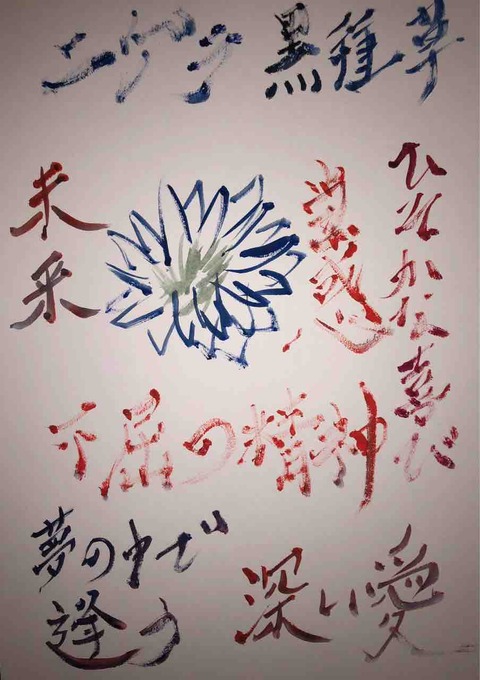 ニゲラ 黒種草
ひそかな喜び
当惑
未来
不屈の精神
夢の中で
逢う
深い愛